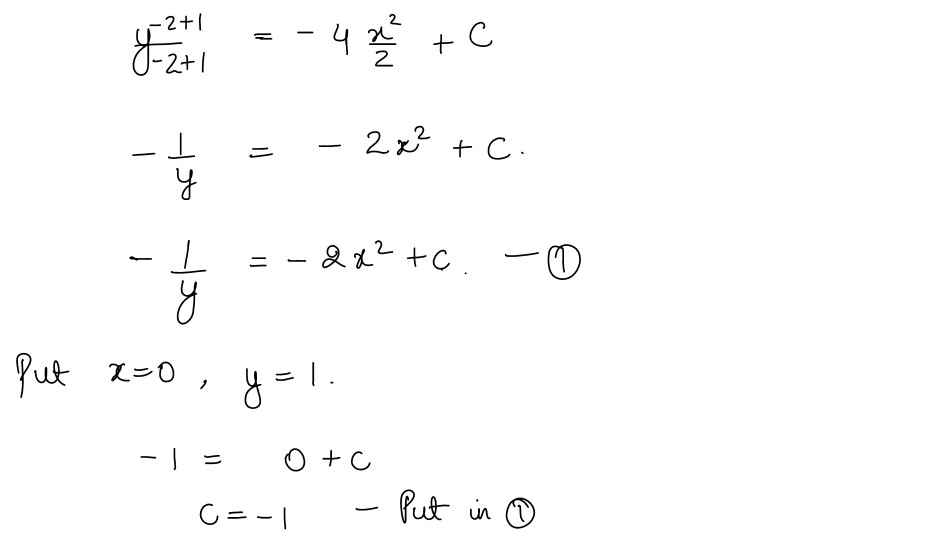 y^{-2+1}/-2+1 = - 4 x²/2 + C
- 1/y = - 2x² + C.
- 1/y = - 2x² + C. — ①
Put x=0, y=1.
-1 = 0 + C
C = -1 - Put in ①